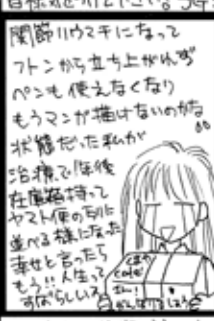 関節リウマチになって
フトンから立ち上がれず
ペンも使えなくなり
もうマンガ描けないのかな
状態だった私が
治療で1年後
在庫箱持って
ヤマト便の列に
並べる様になった
幸せと言ったら
もう!!人生って
すばらしいス